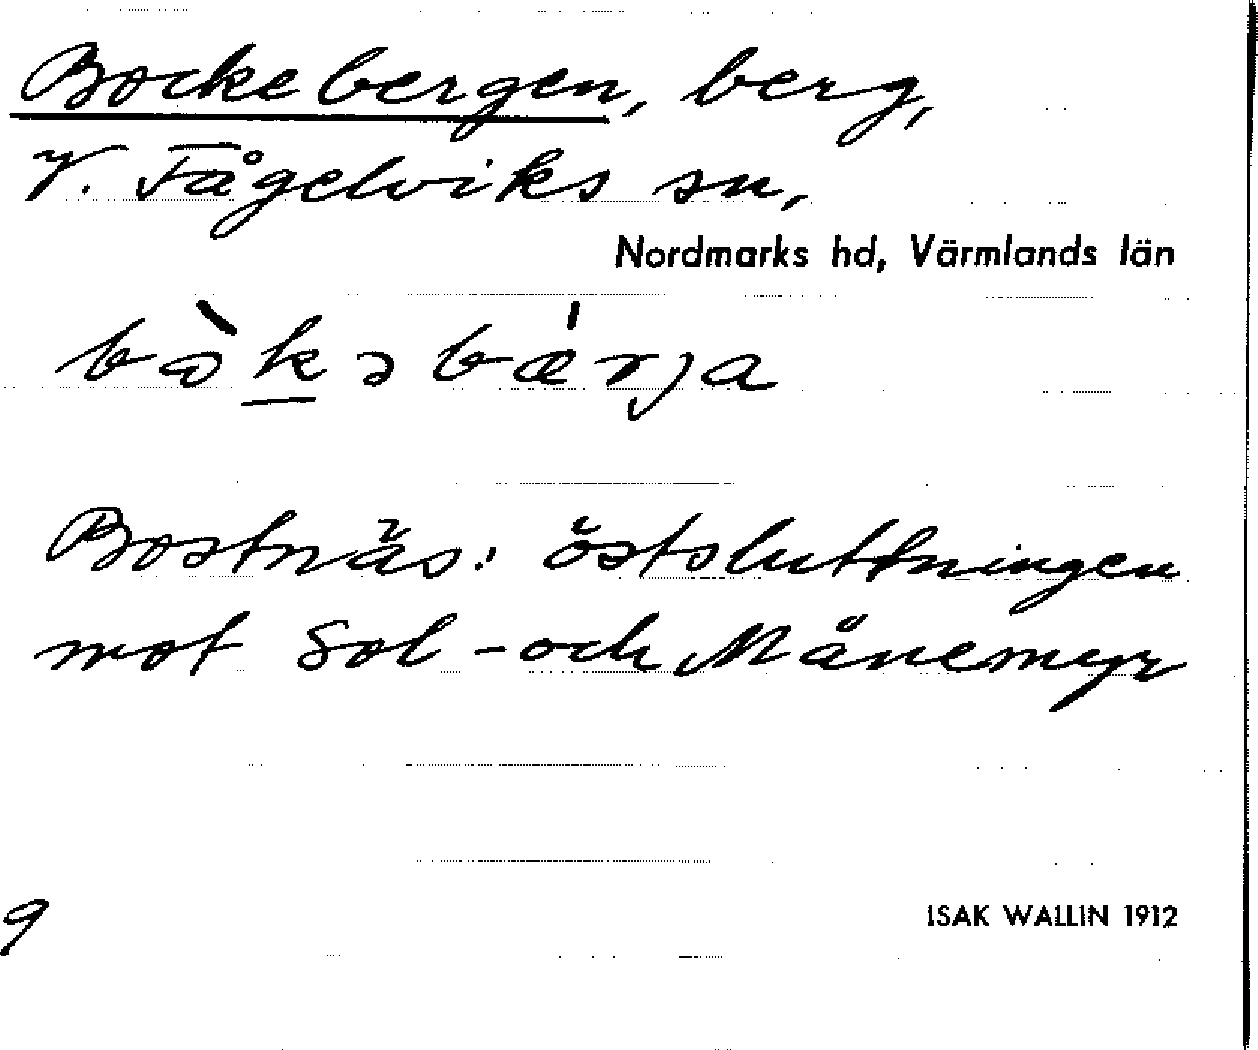 Bockebergen, berg,
V. Fågelviks sn,
Nordmarks hd, Värmlands län
bòkəbǽrja
Bostnäs: östsluttningen
mot Sol- och Månemyr
9
ISAK WALLIN 1912